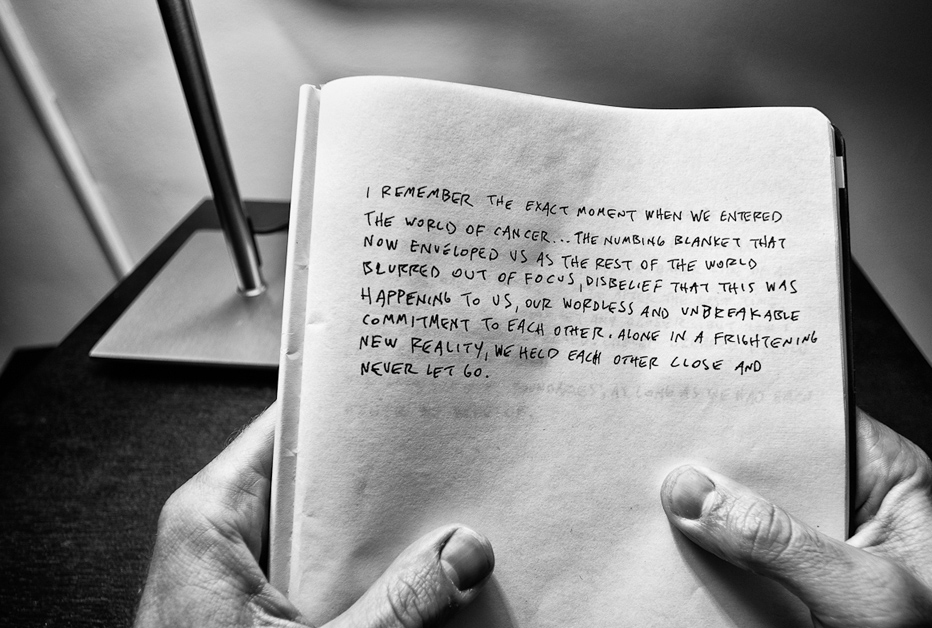 I REMEMBER THE EXACT MOMENT WHEN WE ENTERED
THE WORLD OF CANCER... THE NUMBING BLANKET THAT
NOW ENVELOPED US AS THE REST OF THE WORLD
BLURRED OUT OF FOCUS, DISBELIEF THAT THIS WAS
HAPPENING TO US, OUR WORDLESS AND UNBREAKABLE
COMMITMENT TO EACH OTHER. ALONE IN A FRIGHTENING
NEW REALITY, WE HELD EACH OTHER CLOSE AND
NEVER LET GO.
AS LONG AS WE HAD EACH